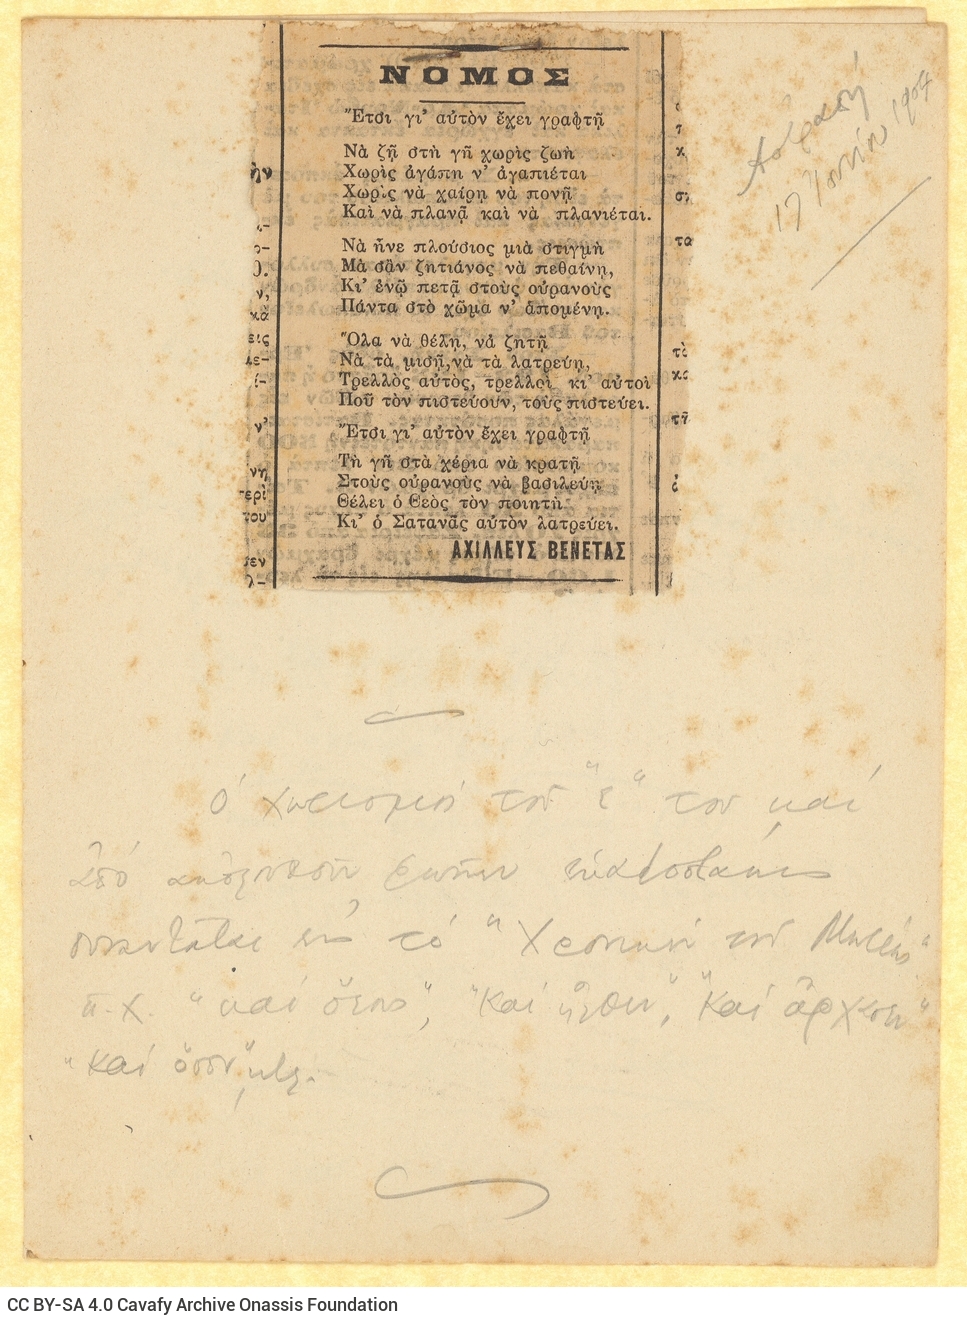 ΝΟΜΟΣ
Ἔτσι γι' αὐτὸν ἔχει γραφτῆ
Νὰ ζῇ στὴ γῆ χωρὶς ζωὴ
Χωρὶς ἀγάπη ν' ἀγαπιέται
Χωρὶς νὰ χαίρῃ νὰ πονῇ
Καὶ νὰ πλανᾷ καὶ νὰ πλανιέται.
Νὰ ἦνε πλούσιος μιὰ στιγμὴ
Μὰ σὰν ζητιάνος νὰ πεθαίνῃ,
Κι' ἐνῷ πετᾷ στοὺς οὐρανοὺς
Πάντα στὸ χῶμα ν' ἀπομένῃ.
Ὅλα νὰ θέλῃ, νὰ ζητῇ
Νὰ τὰ μισῇ, νὰ τὰ λατρεύῃ,
Τρελλὸς αὐτὸς, τρελλοὶ κι' αὐτοὶ
Ποῦ τὸν πιστεύουν, τοὺς πιστεύει.
Ἔτσι γι' αὐτὸν ἔχει γραφτῆ
Τὴ γῆ στὰ χέρια νὰ κρατῇ
Στοὺς οὐρανοὺς νὰ βασιλεύῃ
Θέλει ὁ Θεὸς τὸν ποιητὴ
Κι' ὁ Σατανᾶς αὐτὸν λατρεύει.
ΑΧΙΛΛΕΥΣ ΒΕΝΕΤΑΣ
Ἀστραπή
17 Ἰουνίου 1904
Ὁ χωρισμός τοῦ "ι" του καί
ἀπό φωνήεν
συναντᾶται εἰς τό "Χρονικόν τοῦ Μωρέως"
π.χ. "καί ὅπως", "καί ἦλθεν", "καί ἄρχισεν"
"καί ὅσον", κτλ.